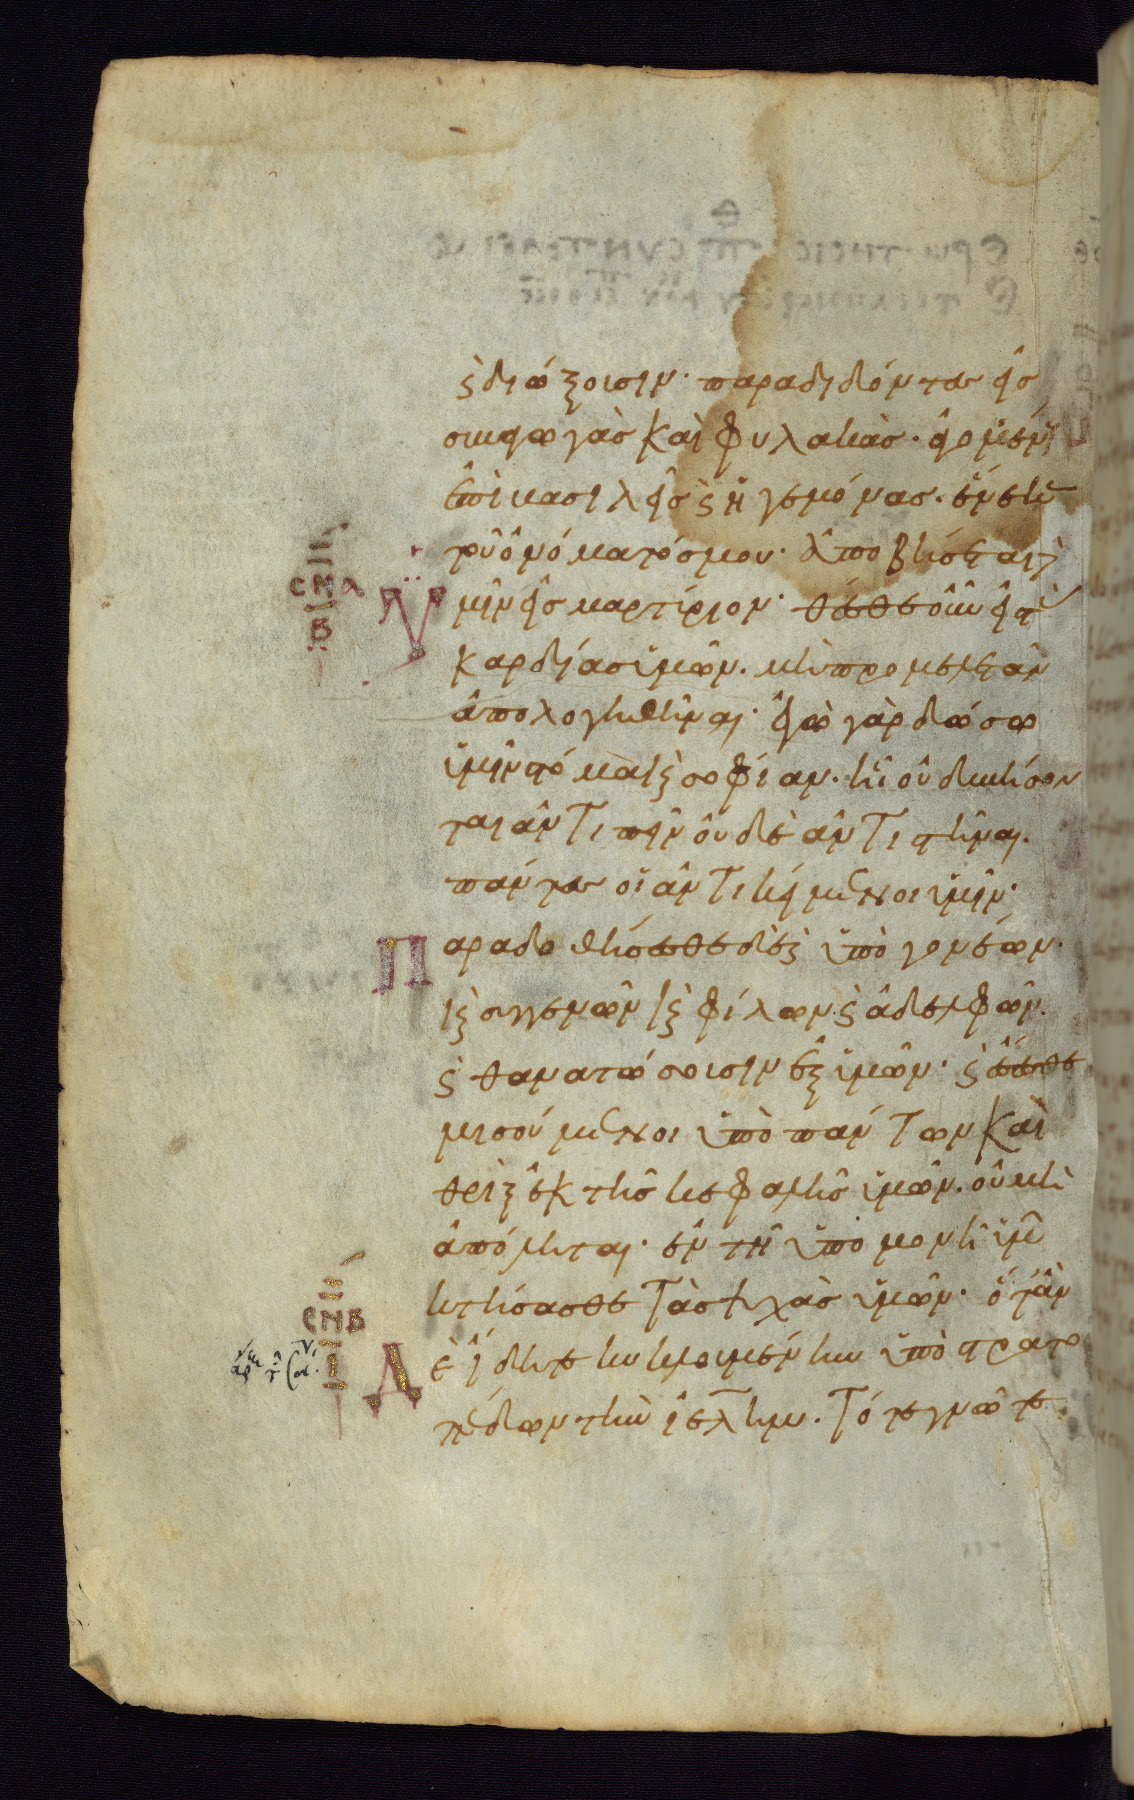 ϛ διώξουσιν· παραδιδόντες εἰς
συναγωγὰς καὶ φυλακὰς· ἀγομένους
ἐπὶ βασιλεῖς ϛ ἡγεμόνας· ἕνεκεν
τοῦ ὀνόματός μου· ἀποβήσεται ὑ
ϹΝΑ
Β
μῖν εἰς μαρτύριον· θέσθε οὖν εἰς τὰς
καρδίας ὑμῶν· μὴ προμελετᾶν
ἀπολογηθῆναι· ἐγὼ γὰρ δώσω
ὑμῖν στόμα καὶ σοφίαν· ᾗ οὐ δυνήσον
ται ἀντιπεῖν οὐδὲ ἀντιστῆναι·
πάντες οἱ ἀντικείμενοι ὑμῖν·
Παραδοθήσεσθε δὲ καὶ ὑπὸ γονέων·
καὶ συγγενῶν καὶ φίλων ϛ ἀδελφῶν·
ϛ θανατώσουσιν ἐξ ὑμῶν· ϛ ἔσεσθε
μισούμενοι ὑπὸ πάντων καὶ
θρὶξ ἐκ τῆς κεφαλῆς ὑμῶν· οὐ μὴ
ἀπόληται· ἐν τῇ ὑπομονῇ ὑμῶν
κτήσασθε τὰς ψυχὰς ὑμῶν· ὅταν
ϹΝΒ
Ι
Δὲ ἴδητε κυκλουμένην ὑπὸ στρατο
πέδων τὴν ἱελήμ· τότε γνῶτε